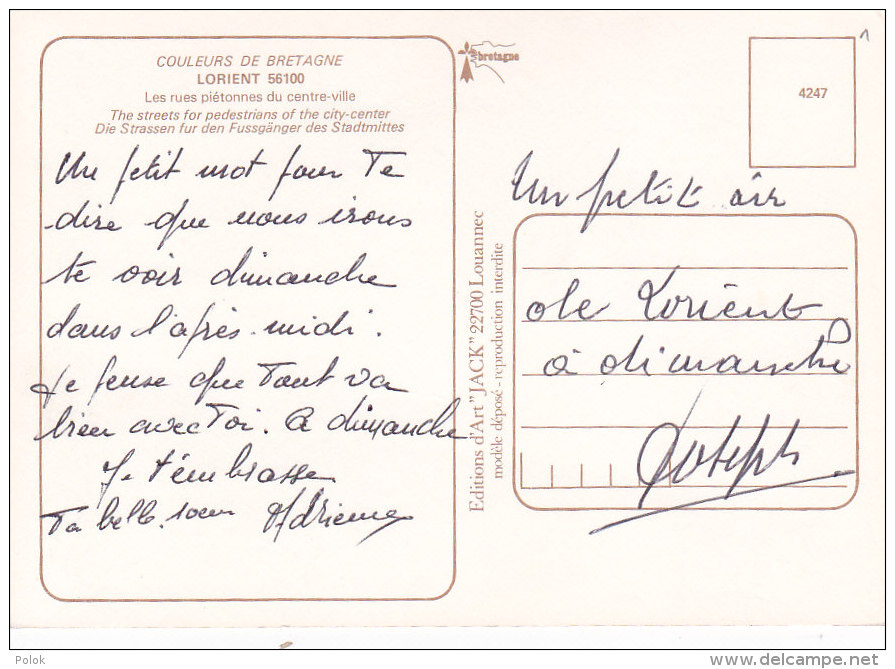 COULEURS DE BRETAGNE
LORIENT 56100
Les rues piétonnes du centre-ville
The streets for pedestrians of the city-center
Die Strassen fur den Fussgänger des Stadtmittes
Un petit mot pour Te
dire que nous irons
te voir dimanche
dans l'après-midi.
Je pense que Tout va
bien avec Toi. A dimanche
Je t'embrasse
Ta belle-soeur Adrienne
bretagne
Editions d'Art "JACK" 22700 Louannec
modèle déposé - reproduction interdite
4247
1
Un petit air
de Lorient
à dimanche
Joseph
Polok
http://www.delcampe.net